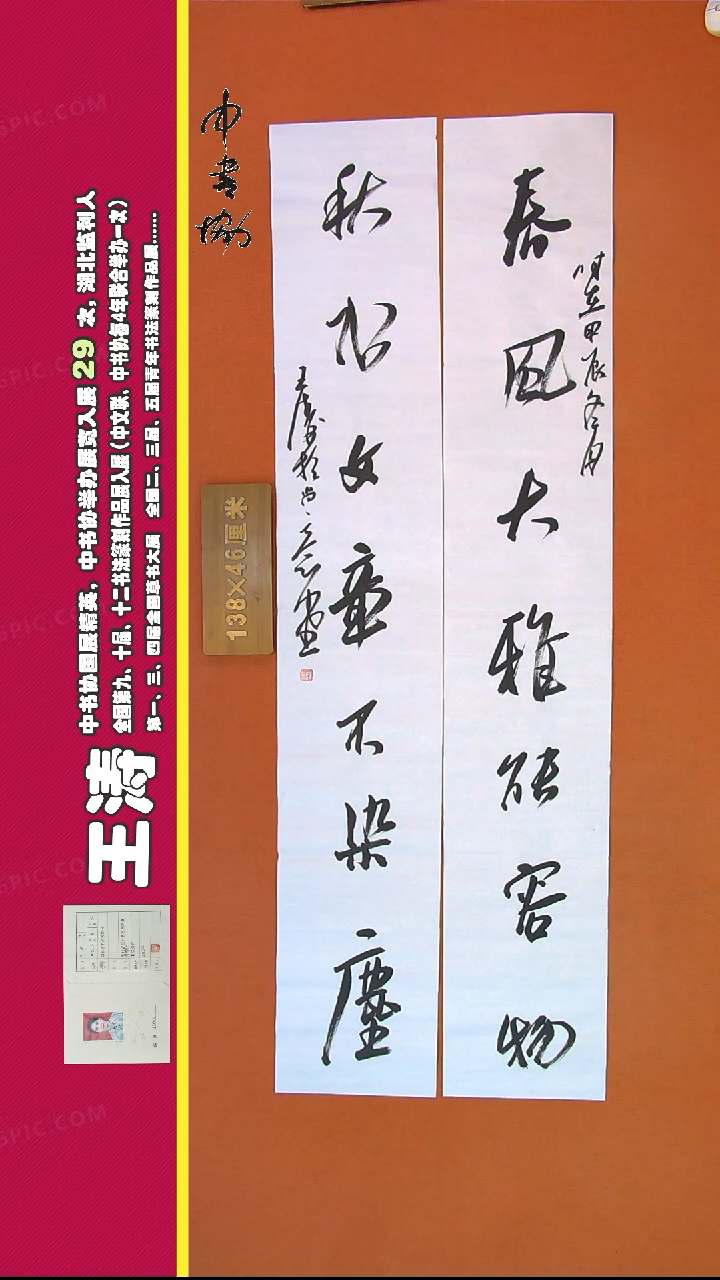 春風大雅能容物
時在甲辰冬月
秋水文章不染塵
王濤於
中書協
138×46厘米
王涛
中书协国展精英，中书协举办展览入展 29 次，湖北监利人
全国第九、十届、十二书法篆刻作品展入展（中文联，中书协每4年联合举办一次）
第一、三、四届全国草书大展 全国二、三届、五届青年书法篆刻作品展......